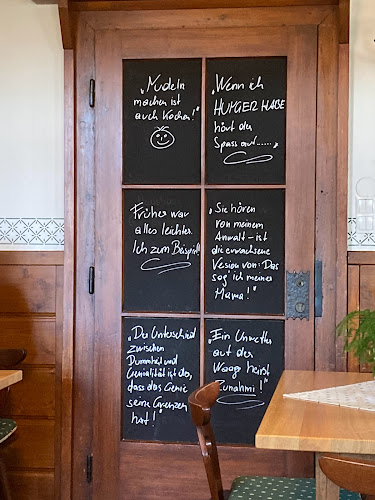 „Nudeln
machen ist
auch Kochen!"
„Wenn ich
HUNGER HABE
hört der
Spass auf.....
Früher war
alles leichter.
Ich zum Beispiel!"
„Sie hören
von meinem
Anwalt – ist
die erwachsene
Version von: Das
sag' ich meiner
Mama!"
„Der Unterschied
zwischen
Dummheit und
Genialität ist der,
dass das Genie
seine Grenzen
hat!"
„Ein Unwetter
auf der
Waage heisst
Zunahmi!"